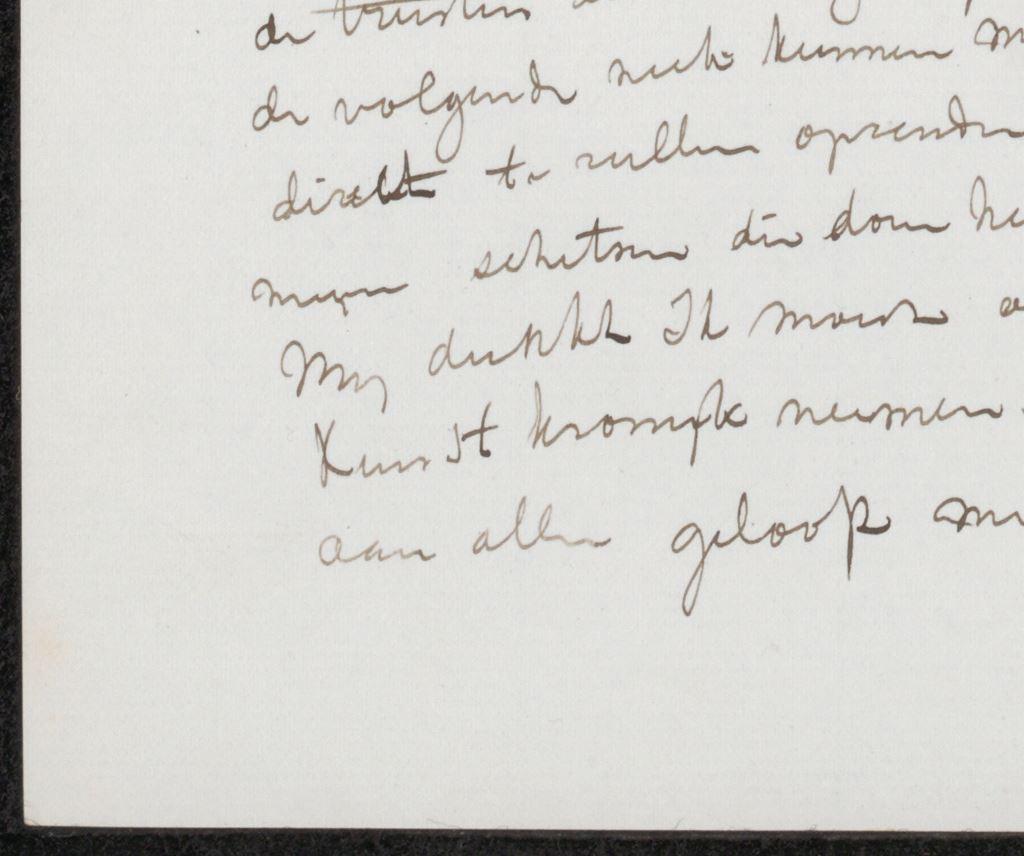 de
de volgende week kunnen
direkt te zullen opzenden
mijn schetsen die dom
Mij dunkt Ik moest
Kunst kronijk nemen
aan allen geloof